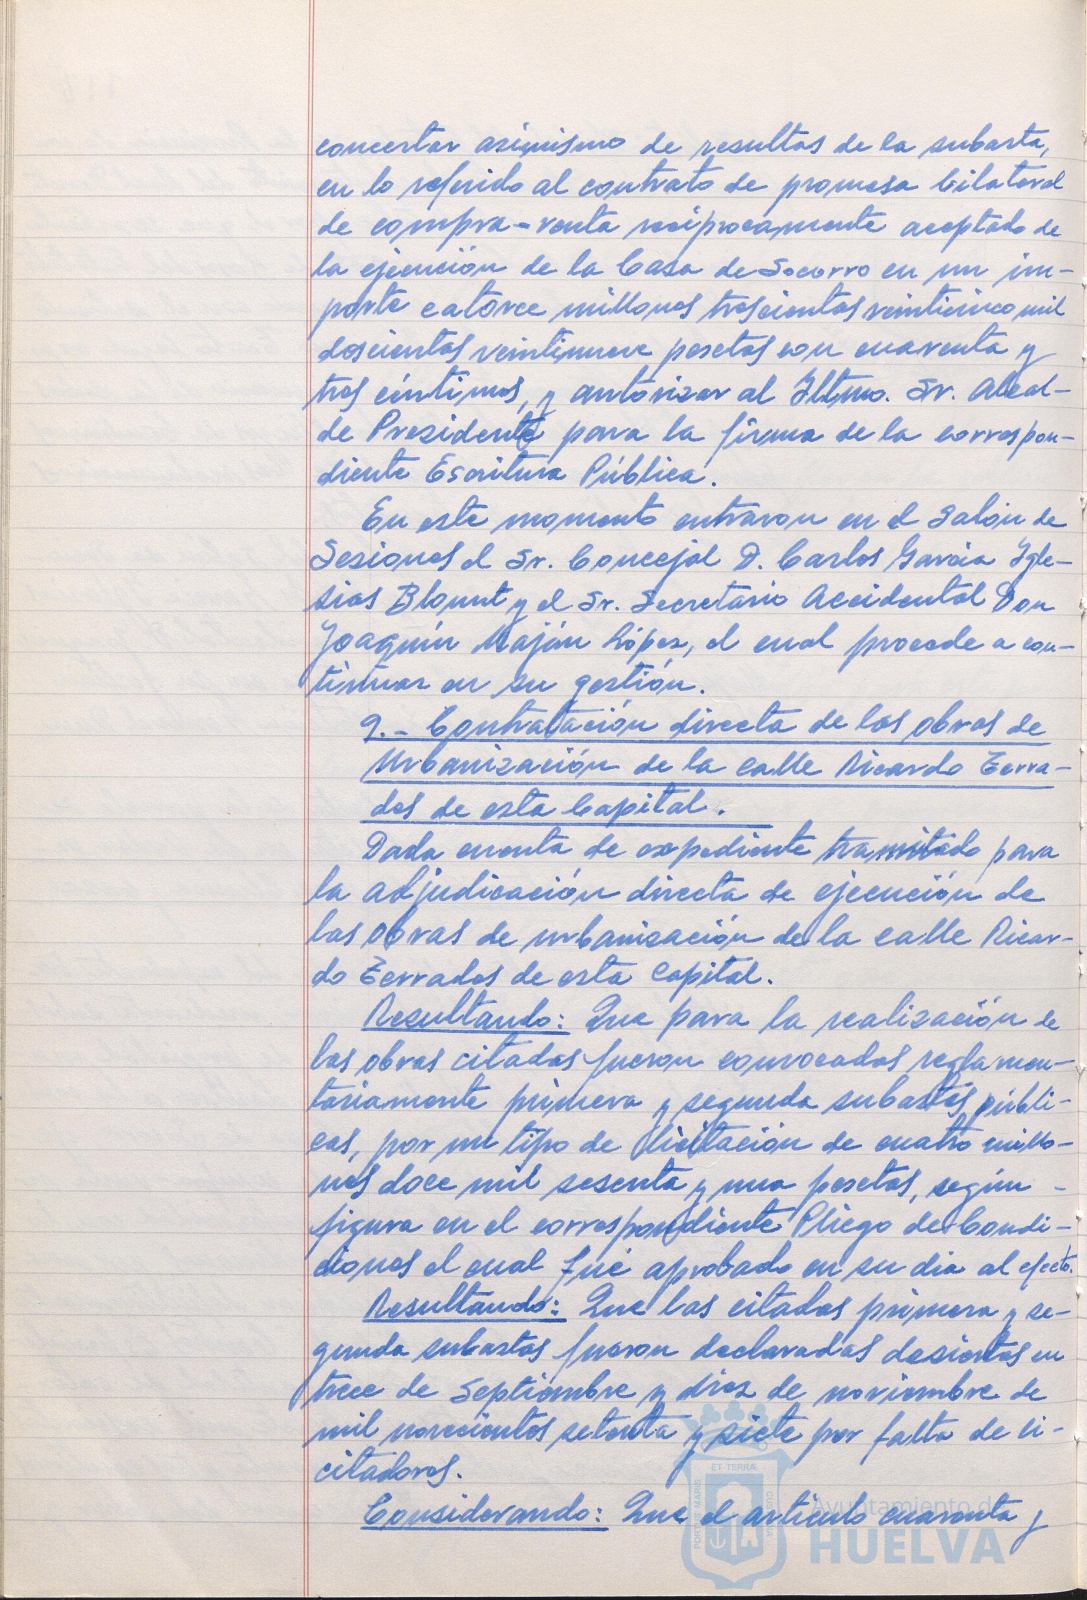 concertar asimismo de resultas de la subasta,
en lo referido al contrato de promesa bilateral
de compra-venta recíprocamente aceptado de
la ejecución de la Casa de Socorro en un im-
porte catorce millones trescientas veinticinco mil
doscientas veintinueve pesetas con cuarenta y
tres céntimos, y autorizar al Iltmo. Sr. Alcal-
de Presidente para la firma de la correspon-
diente Escritura Pública.
En este momento entraron en el Salón de
Sesiones el Sr. Concejal D. Carlos García Igle-
sias Blount y el Sr. Secretario Accidental Don
Joaquín Maján López, el cual procede a con-
tinuar en su gestión.
9.- Contratación directa de las obras de
Urbanización de la calle Ricardo Terra-
dos de esta Capital.
Dada cuenta de expediente tramitado para
la adjudicación directa de ejecución de
las obras de urbanización de la calle Ricar-
do Terrados de esta Capital.
Resultando: Que para la realización de
las obras citadas fueron convocadas reglamen-
tariamente primera y segunda subastas públi-
cas, por un tipo de licitación de cuatro millo-
nes doce mil sesenta y una pesetas, según -
figura en el correspondiente Pliego de Condi-
ciones el cual fué aprobado en su dia al efecto.
Resultando: Que las citadas primera y se-
gunda subastas fueron declaradas desiertas en
trece de Septiembre y diez de noviembre de
mil novecientos setenta y siete por falta de li-
citadores.
Considerando: Que el artículo cuarenta y
Ayuntamiento de
HUELVA